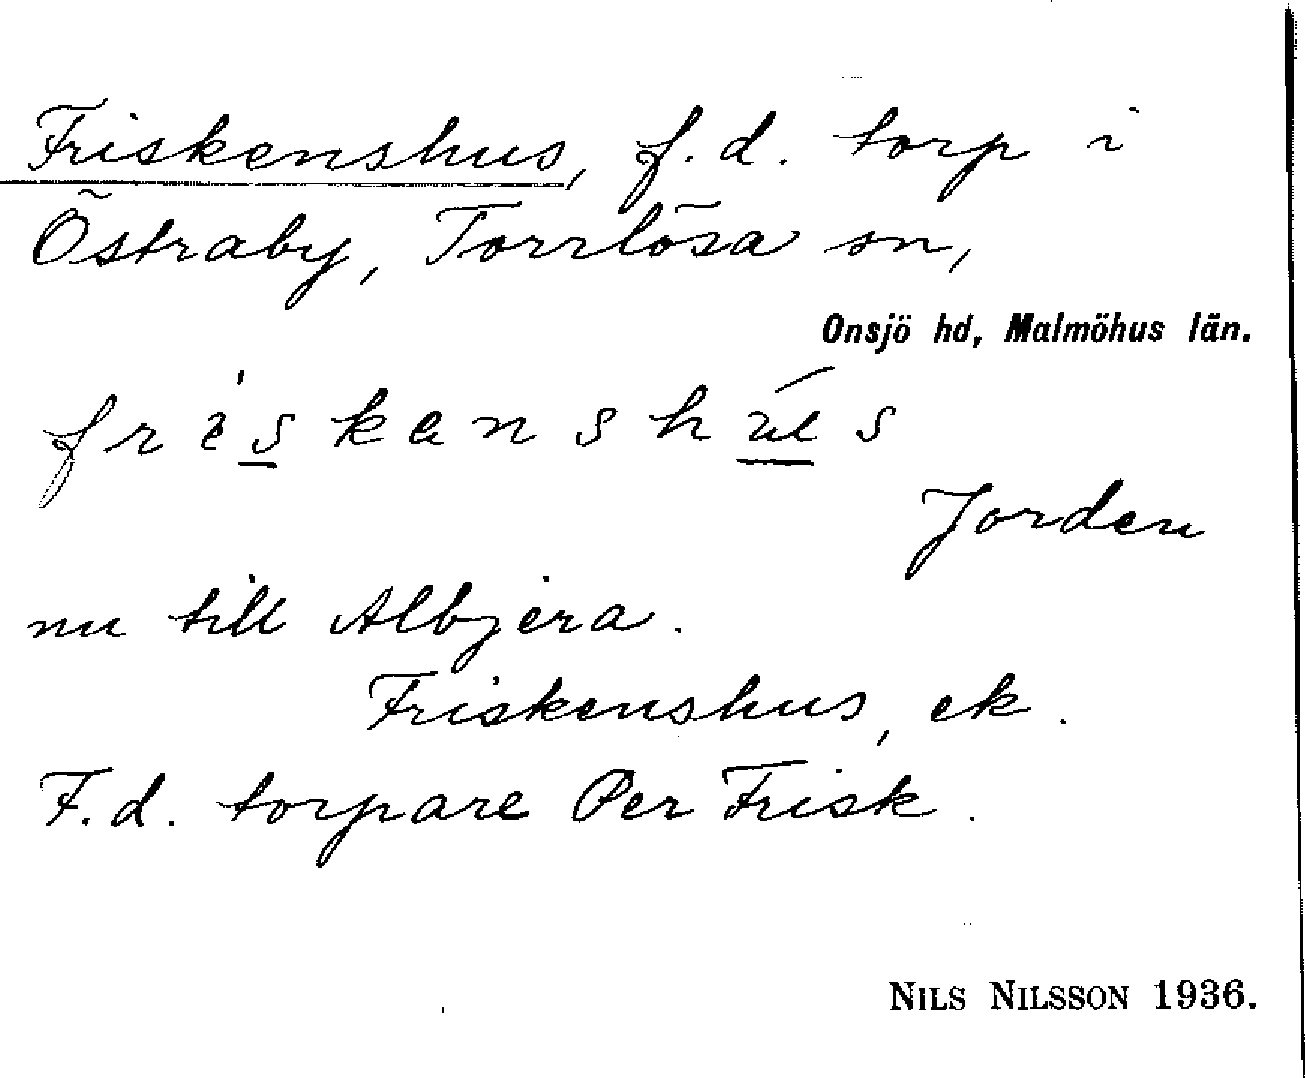 Friskenshus, f.d. torp i
Östraby, Torrlösa sn,
Onsjö hd, Malmöhus län.
friskenshús
Jorden
nu till Albjera.
Friskenshus, ek.
F.d. torpare Per Frisk.
NILS NILSSON 1936.